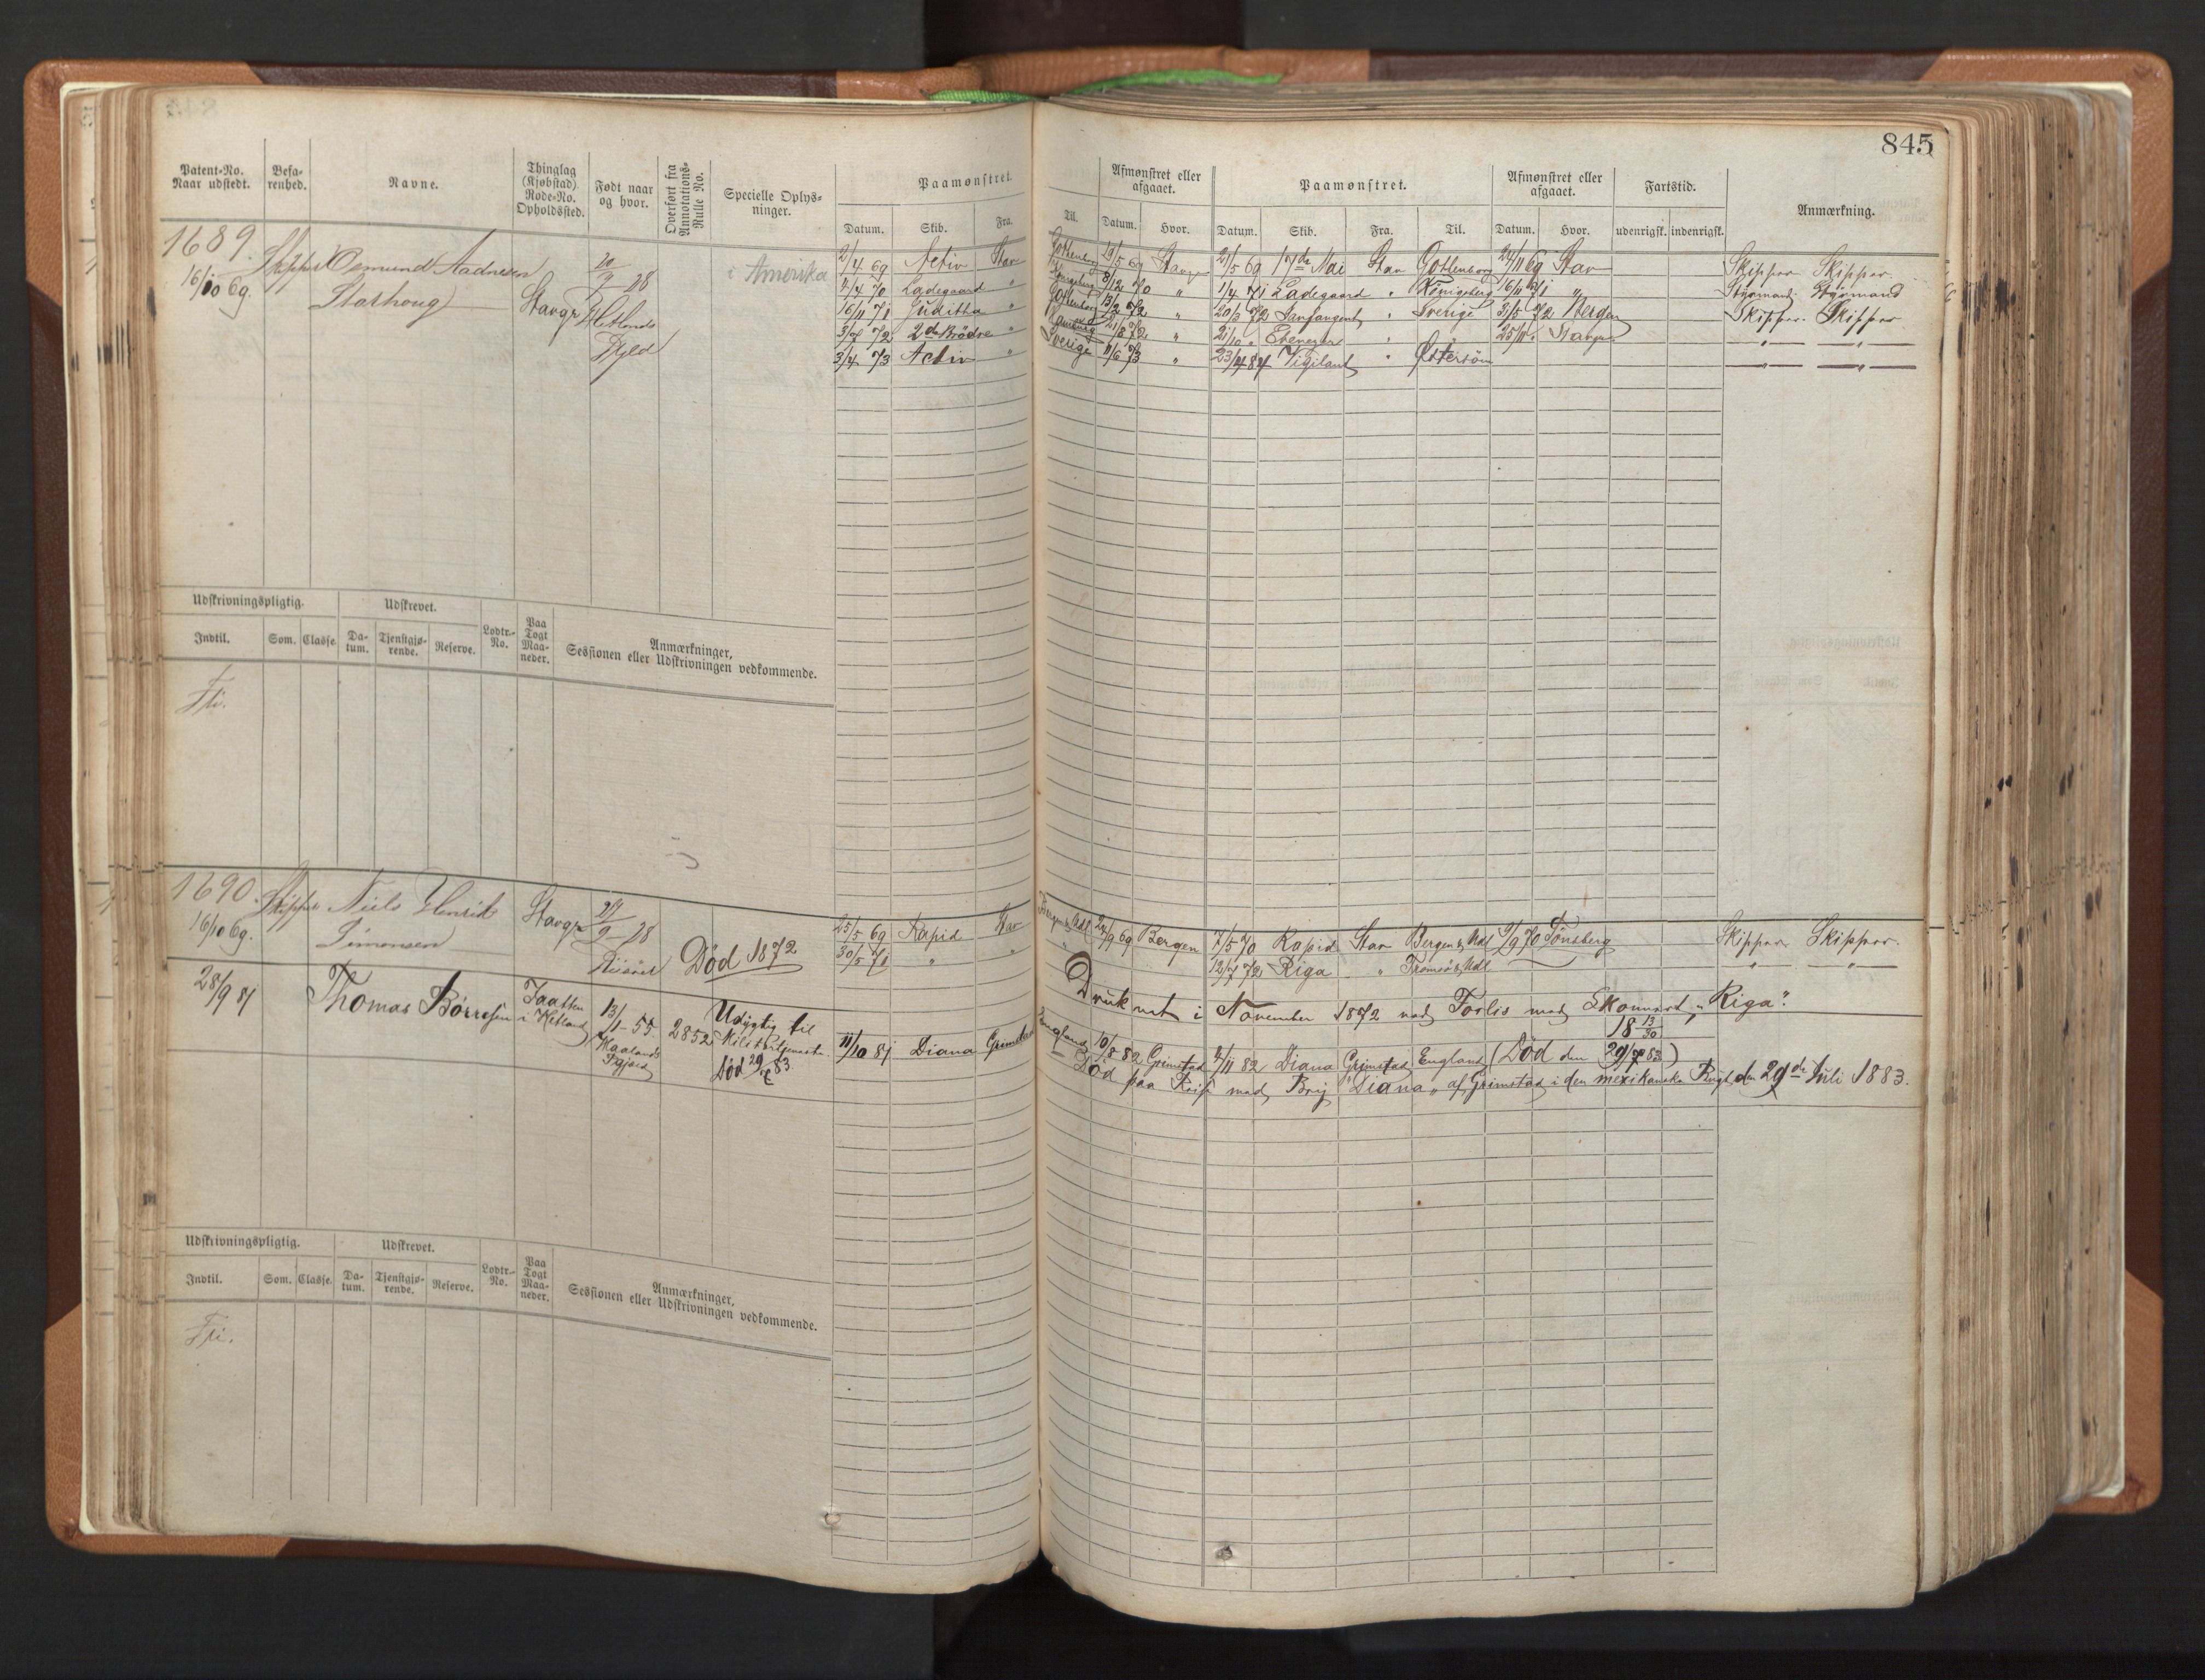 845
Patent-No. Naar udstedt.
Befarenhed.
Navne.
Thinglag (Kjøbstad) Rode-No. Opholdssted.
Født naar og hvor.
Overført fra Annotations-Rulle No.
Specielle Oplysninger.
Paamønstret.
Datum. Skib. Fra. Til.
Afmønstret eller afgaaet.
Datum. Hvor.
Paamønstret.
Datum. Skib. Fra. Til.
Afmønstret eller afgaaet.
Datum. Hvor.
Fartstid.
udenrigsk. indenrigsk.
Anmærkning.
1689.
16/10 69.
Skipper Osmund Aadnesen
Stavgr
28
Hetlands
Fjeld
i Amerika
2/4 69 Activ Stav Gottenborg 19/5 69 Stavgr 21/5 69 17de Mai Stav Gottenborg 24/11 69 Stav Skipper Skipper.
4/4 70 Ladegaard " 8/12 70 " 1/4 71 Ladegaard " Königsberg 16/11 71 " Styrmand Styrmand
16/11 71 Juditha " Gottenborg 13/2 72 " 20/3 72 " Sverige 31/5 72 Bergen Skipper. Skipper
3/7 72 2de Brödre " 21/8 72 " 21/10 " Ebenezer " 25/11 " Stavgr " "
3/4 73 Activ " Sverige 11/6 73 " 23/4 84 Vigilant " Östersöen " "
Udskrivningspligtig.
Udskrevet.
Indtil. Som. Classe. Datum. Tjenstgjørende. Reserve. Lodtr.-No. Paa Togt Maaneder.
Anmærkninger, Sessionen eller Udskrivningen vedkommende.
Fri.
1690.
16/10 69.
Skipper Niels Henrik
Simonsen
Stavgr
28
Död 1872
25/5 69 Rapid Stav Bergen & Udl 24/9 69 Bergen 7/5 70 Rapid Stav Bergen & Udl 9/9 70 Tönsberg Skipper Skipper.
30/5 71 " " " 12/7 72 Riga " Tromsö & Udl " "
Druknet i November 1872 ved Forlis med Skonnert "Riga".
28/9 81
Thomas Börresen
Jaatten
i Hetland
13/1 - 55
2852
Udygtig til
Militærtjeneste.
Död 29/7 83
11/10 81 Diana Grimstad England 10/8 82 Grimstad 4/11 82 Diana Grimstad England (Död den 29/7 83)
18 13/90
Död paa Reise med Brig "Diana" af Grimstad i den mexikanske Bugt den 29de Juli 1883.
Udskrivningspligtig.
Udskrevet.
Indtil. Som. Classe. Datum. Tjenstgjørende. Reserve. Lodtr.-No. Paa Togt Maaneder.
Anmærkninger, Sessionen eller Udskrivningen vedkommende.
Fri.